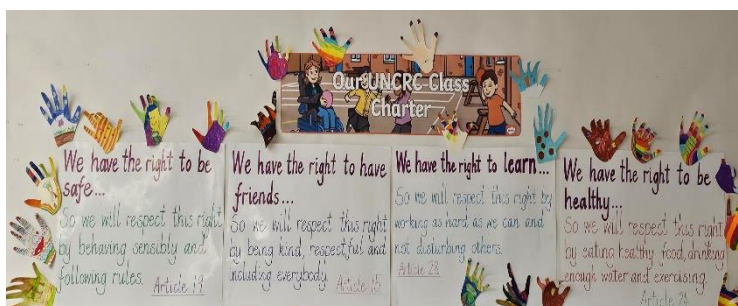 Our UNCRC Class
Charter
We have the right to be
safe...
So we will respect this right
by behaving sensibly and
following rules.
Article 19
We have the right to have
friends...
So we will respect this right
by being kind, respectful and
including everybody.
Article 15
We have the right to learn...
So we will respect this right by
working as hard as we can and
not disturbing others.
Article 28
We have the right to be
healthy...
So we will respect this right
by eating healthy food, drinking
enough water and exercising.
Article 24